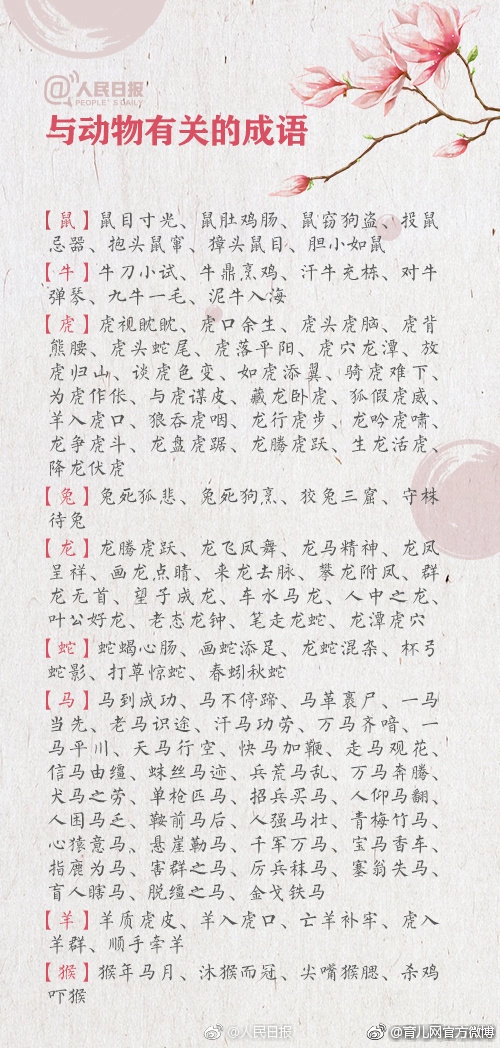 @人民日报
PEOPLE'S DAILY
与动物有关的成语
【鼠】鼠目寸光、鼠肚鸡肠、鼠窃狗盗、投鼠
忌器、抱头鼠窜、獐头鼠目、胆小如鼠
【牛】牛刀小试、牛鼎烹鸡、汗牛充栋、对牛
弹琴、九牛一毛、泥牛入海
【虎】虎视眈眈、虎口余生、虎头虎脑、虎背
熊腰、虎头蛇尾、虎落平阳、虎穴龙潭、放
虎归山、谈虎色变、如虎添翼、骑虎难下、
为虎作伥、与虎谋皮、藏龙卧虎、狐假虎威、
羊入虎口、狼吞虎咽、龙行虎步、龙吟虎啸、
龙争虎斗、龙盘虎踞、龙腾虎跃、生龙活虎、
降龙伏虎
【兔】兔死狐悲、兔死狗烹、狡兔三窟、守株
待兔
【龙】龙腾虎跃、龙飞凤舞、龙马精神、龙凤
呈祥、画龙点睛、来龙去脉、攀龙附凤、群
龙无首、望子成龙、车水马龙、人中之龙、
叶公好龙、老态龙钟、笔走龙蛇、龙潭虎穴
【蛇】蛇蝎心肠、画蛇添足、龙蛇混杂、杯弓
蛇影、打草惊蛇、春蚓秋蛇
【马】马到成功、马不停蹄、马革裹尸、一马
当先、老马识途、汗马功劳、万马齐喑、一
马平川、天马行空、快马加鞭、走马观花、
信马由缰、蛛丝马迹、兵荒马乱、万马奔腾、
犬马之劳、单枪匹马、招兵买马、人仰马翻、
人困马乏、鞍前马后、人强马壮、青梅竹马、
心猿意马、悬崖勒马、千军万马、宝马香车、
指鹿为马、害群之马、厉兵秣马、塞翁失马、
盲人瞎马、脱缰之马、金戈铁马
【羊】羊质虎皮、羊入虎口、亡羊补牢、虎入
羊群、顺手牵羊
【猴】猴年马月、沐猴而冠、尖嘴猴腮、杀鸡
吓猴
@人民日报
@育儿网官方微博